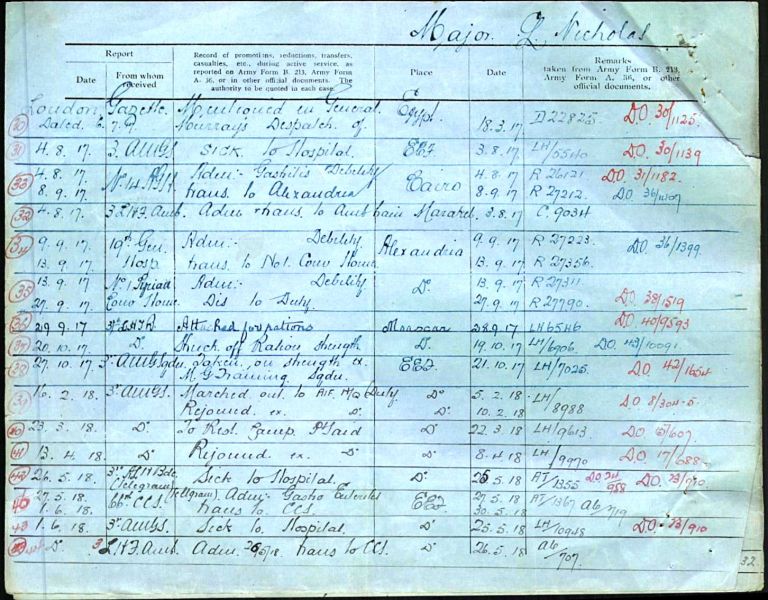 Major. Nicholas
Report
Date
From whom received
Record of promotions, reductions, transfers, casualties, etc., during active service, as reported on Army Form B. 213, Army Form A. 36, or in other official documents. The authority to be quoted in each case.
Place
Date
Remarks
taken from Army Form B. 213, Army Form A. 36, or other official documents.
London Gazette. Mentioned in General Egypt
30 Dated 6. 7. 17 Murrays Despatch of 18.3.17 D22825. D.O. 30/1125.
31 4. 8. 17. 3. AMGS Sick to Hospital. EEF 3. 8. 17 LH/5540 D.O. 30/1139
33 4. 8. 17 No. 14. AGH Adm:- Gastritis Debility Cairo 4. 8. 17 R 26121 D.O. 31/1182.
8. 9. 17. trans. to Alexandria 8. 9. 17 R 27212. D.O. 36/
32 4. 8. 17. 3 LHF. Amb. Adm & trans. to Amb train Marakeb 3. 8. 17 C. 9034
34 9. 9. 17. 19th Gen. Adm:- Debility Alexandria 9. 9. 17 R 27223. D.O. 36/1399
13. 9. 17 Hosp trans. to Not. Conv Home. 13. 9. 17 R 27356.
35 13. 9. 17 No 1 Adm:- Debility Do. 13. 9. 17 R 27311
27. 9. 17. Conv Home. Dis to Duty. 27. 9. 17 R 27790. D.O. 38/1519
36 29. 9. 17 3rd L.H.T.R. Attached for rations Moascar 28 9. 17 LH 6546 D.O. 40/9593
37 20. 10. 17 Do. Struck off Ration strength Do. 19. 10. 17 LH/6906. D.O. 43/10091.
38 27. 10. 17 3rd AMGSqdn Taken on strength ex. EEF 21. 10. 17 LH/7025 D.O. 42/1654
M. G Training Sqdn.
39 16. 2. 18. 3rd AMGS. Marched out to AIF. H/Q Duty Do 5. 2. 18 LH/8988 D.O 8/304-5.
Rejoined. ex. Do. Do. 10. 2. 18
40 23. 3. 18. Do. To Rest Camp Pt Said Do 22. 3. 18 LH/9613 D.O /607.
41 13. 4. 18 Do. Rejoined ex Do. Do 8. 4. 18 LH/9970 D.O. 17/688
42 26. 5. 18. 3rd ALH Bde. Sick to Hospital. Do 25 5. 18 AT/1355 D.O. 24/958 D.O. 23/910
(Telegram)
27. 5. 18. CCS. (Telegram). Adm: Gastro Enteritis EEF 27. 5. 18 AT/1367 A6/719
1. 6. 18. trans to. CCS. 30. 5. 18
43 1. 6. 18. 3rd AMGS Sick to Hospital. Do. 25. 5. 18 LH/10948 D.O. 23/910
Do. 3 LHF. Amb. Adm. 26/5/18. trans to CCS. Do 26. 5. 18 A6/707.
32.